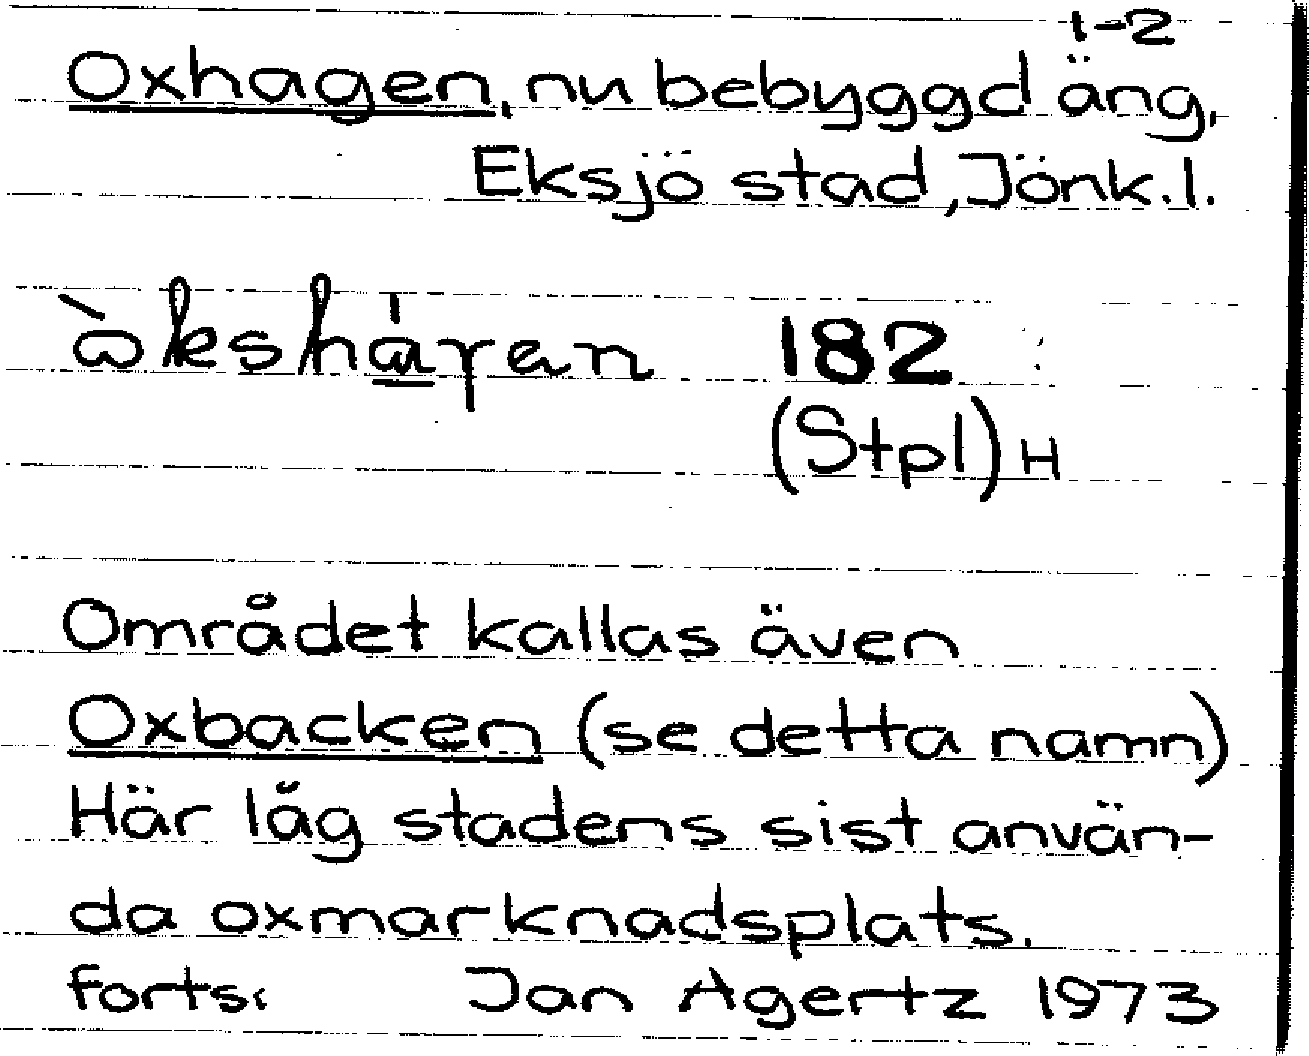 1-2
Oxhagen, nu bebyggd äng,
Eksjö stad, Jönk.l.
182
(Stpl) H
Området kallas även
Oxbacken (se detta namn)
Här låg stadens sist använ-
da oxmarknadsplats.
forts. Jan Agertz 1973